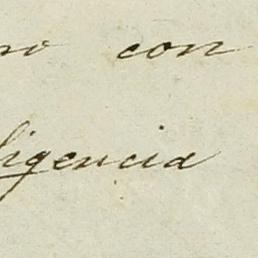 no con
ligencia